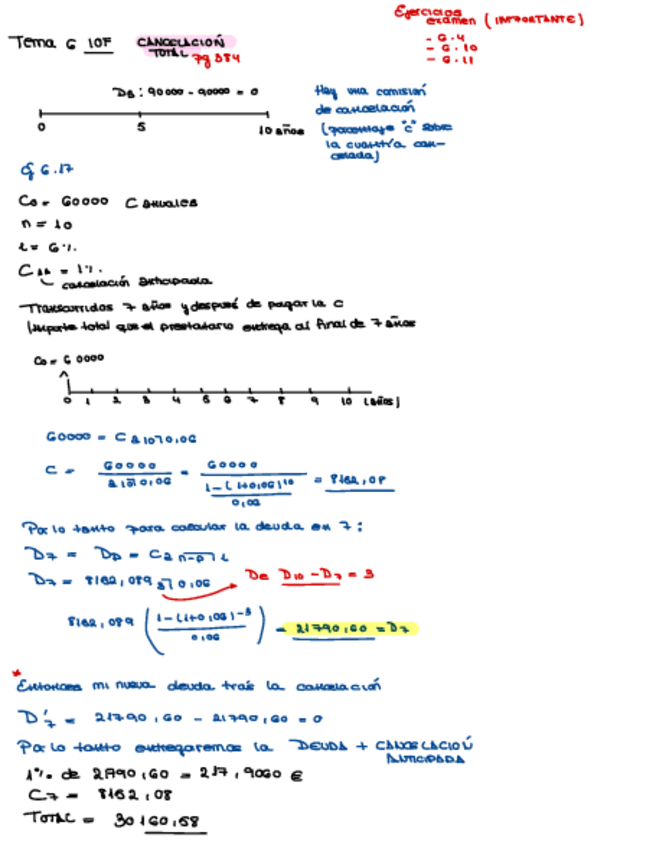 Ejercicios
examen (IMPORTANTE)
- 6.4
- 6.10
- 6.11
Tema 6 10F CANCELACIÓN
TOTAL pg 384
D5 : 90000 - 90000 = 0
0 5 10 años
Hay una comisión
de cancelación
(porcentaje "c" sobre
la cuantía can-
celada)
Ej 6.17
C0 = 60000 C anuales
n = 10
i = 6%
= 1%
cancelación anticipada
Transcurridos 7 años y después de pagar la C
(importe total que el prestatario entrega al final de 7 años
C0 = 60000
0 1 2 3 4 5 6 7 8 9 10 (años)
60000 = C a10⌉0,06
C = 60000 / a10⌉0,06 = 60000 / ((1-(1+0,06)^10) / 0,06) = 8162,08
Por lo tanto para calcular la deuda en 7:
D7 = Dp = C a n-p⌉ i
D7 = 8162,089 3⌉0,06 De D10 - D7 = 3
8162,089 ((1-(1+0,06)^-3) / 0,06) = 21790,60 = D7
* Entonces mi nueva deuda tras la cancelación
D'7 = 21790,60 - 21790,60 = 0
Por lo tanto entregaremos la DEUDA + CANCELACIÓN
ANTICIPADA
1% de 21790,60 = 217,9060 €
C7 = 8162,08
TOTAL = 30160,58